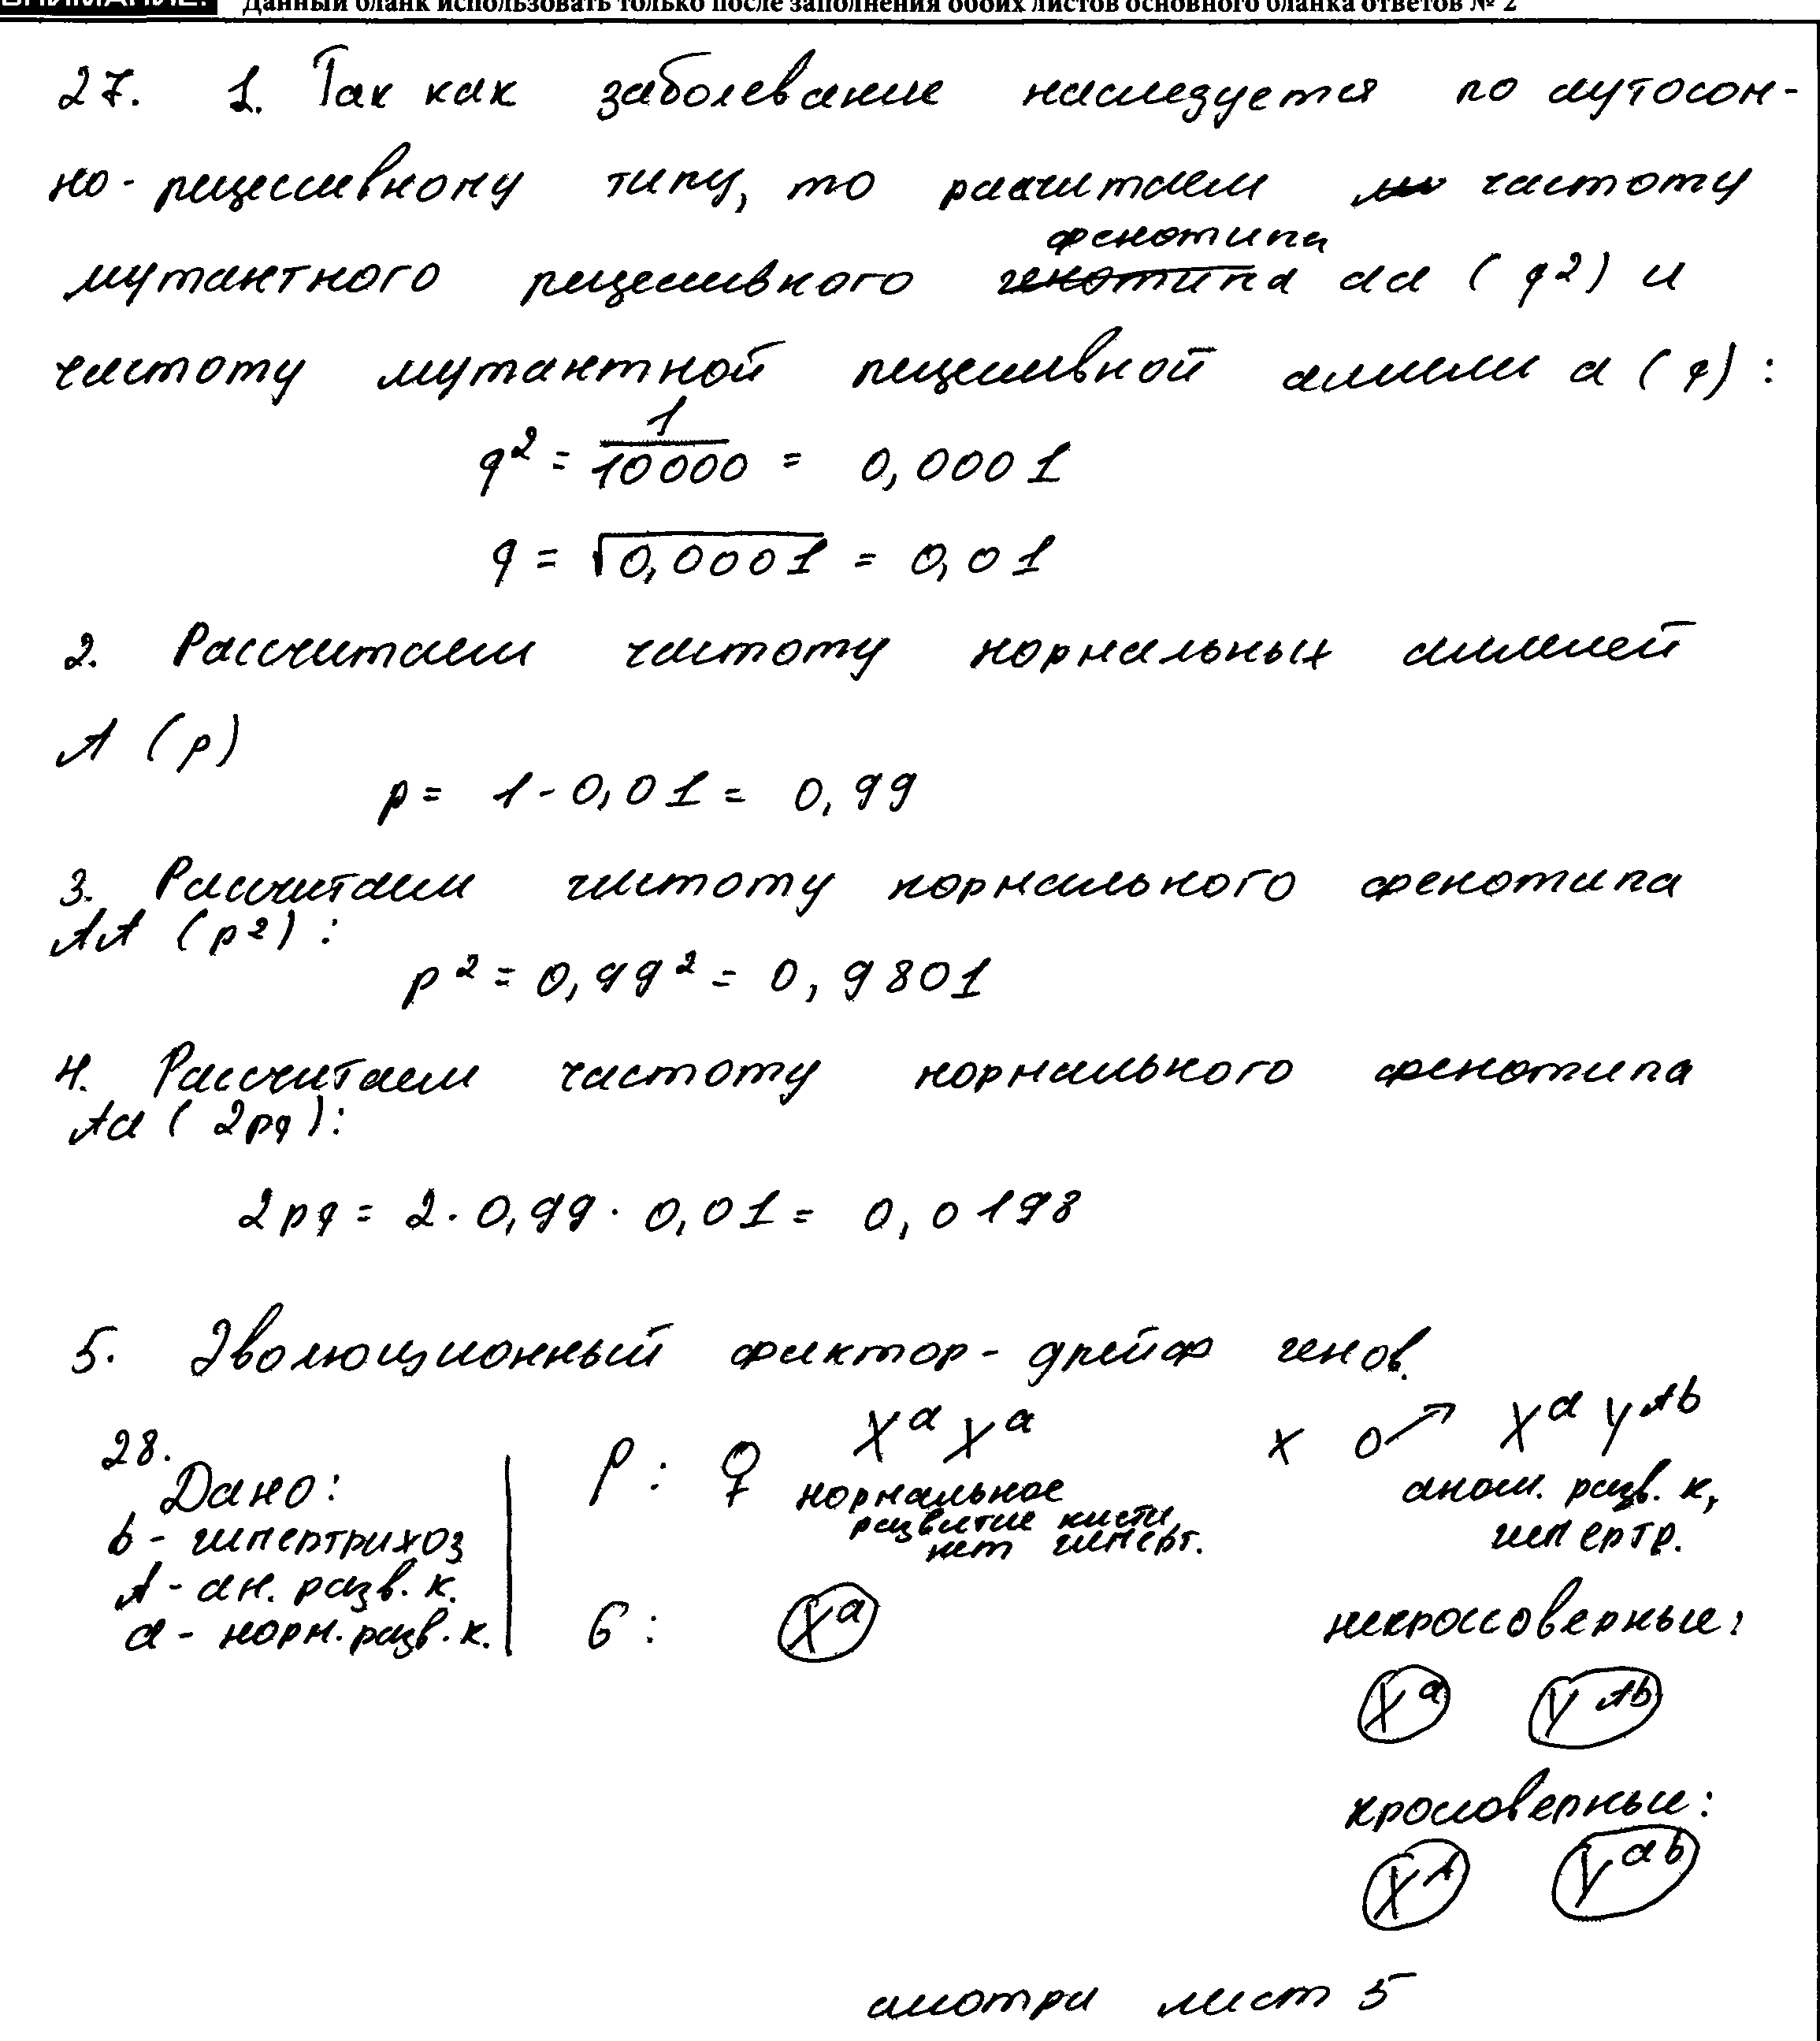 ВНИМАНИЕ! Данный бланк использовать только после заполнения обоих листов основного бланка ответов № 2
27. 1. Так как заболевание наследуется по аутосом-
но-рецессивному типу, то расчитаем частоту
фенотипа
мутантного рецессивного генотипа aa (q²) и
частоту мутантной рецессивной аллели a (q):
q² = 1/10000 = 0,0001
q = √0,0001 = 0,01
2. Рассчитаем частоту нормальных аллелей
A (p)
p = 1 - 0,01 = 0,99
3. Рассчитаем частоту нормального фенотипа
AA (p²):
p² = 0,99² = 0,9801
4. Рассчитаем частоту нормального фенотипа
Aa (2pq):
2pq = 2 · 0,99 · 0,01 = 0,0198
5. Эволюционный фактор - дрейф генов.
28.
Дано:
b - гипертрихоз
A - ан. разв. к.
a - норм. разв. к.
P: ♀ XᵃXᵃ x ♂ XᵃYᴬᵇ
нормальное
развитие кисти,
нет гиперт.
аном. разв. к,
гипертр.
G: Xᵃ
некроссоверные:
Xᵃ Yᴬᵇ
кроссоверные:
Xᴬ Yᵃᵇ
смотри лист 5